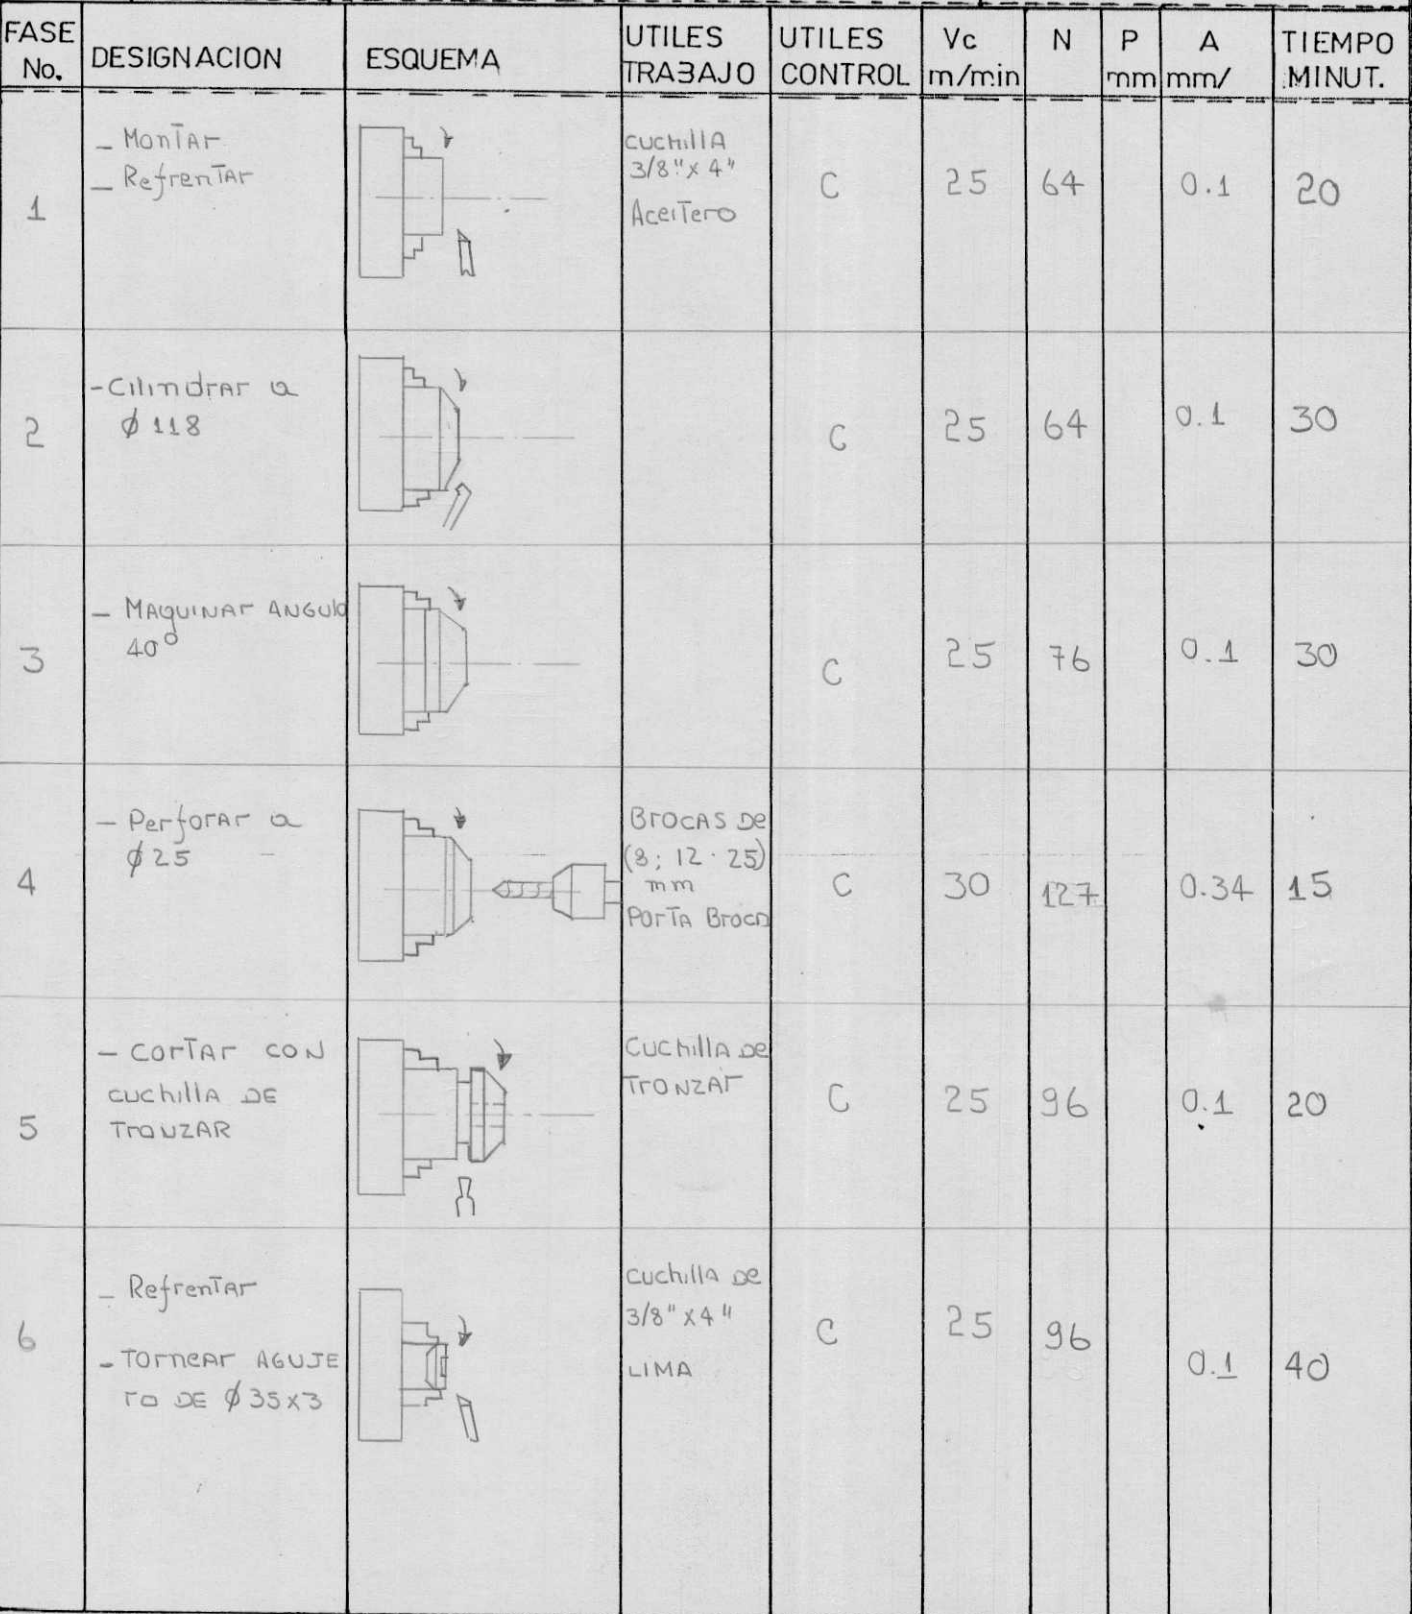 FASE No. DESIGNACION ESQUEMA UTILES TRABAJO UTILES CONTROL Vc m/min N P mm A mm/ TIEMPO MINUT.
1
- Montar
- Refrentar
cuchilla
3/8" x 4"
Aceitero
C 25 64 0.1 20
2
- Cilindrar a
ϕ 118
C 25 64 0.1 30
3
- Maquinar Angulo
40°
C 25 76 0.1 30
4
- Perforar a
ϕ 25
Brocas de
(8; 12 · 25)
mm
Porta Broca
C 30 127 0.34 15
5
- Cortar con
cuchilla de
Tronzar
Cuchilla de
Tronzar
C 25 96 0.1 20
6
- Refrentar
- Tornear Aguje
ro de ϕ 35x3
cuchilla de
3/8" x 4"
Lima
C 25 96 0.1 40